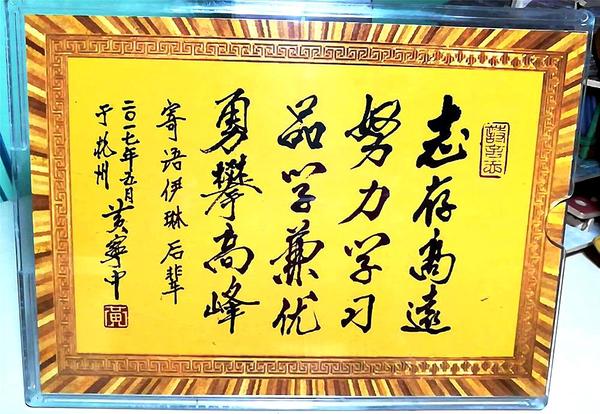 志存高遠
努力学习
品学兼优
勇攀高峰
寄语伊琳后辈
二〇一七年五月
于杭州 黄宁中
黄